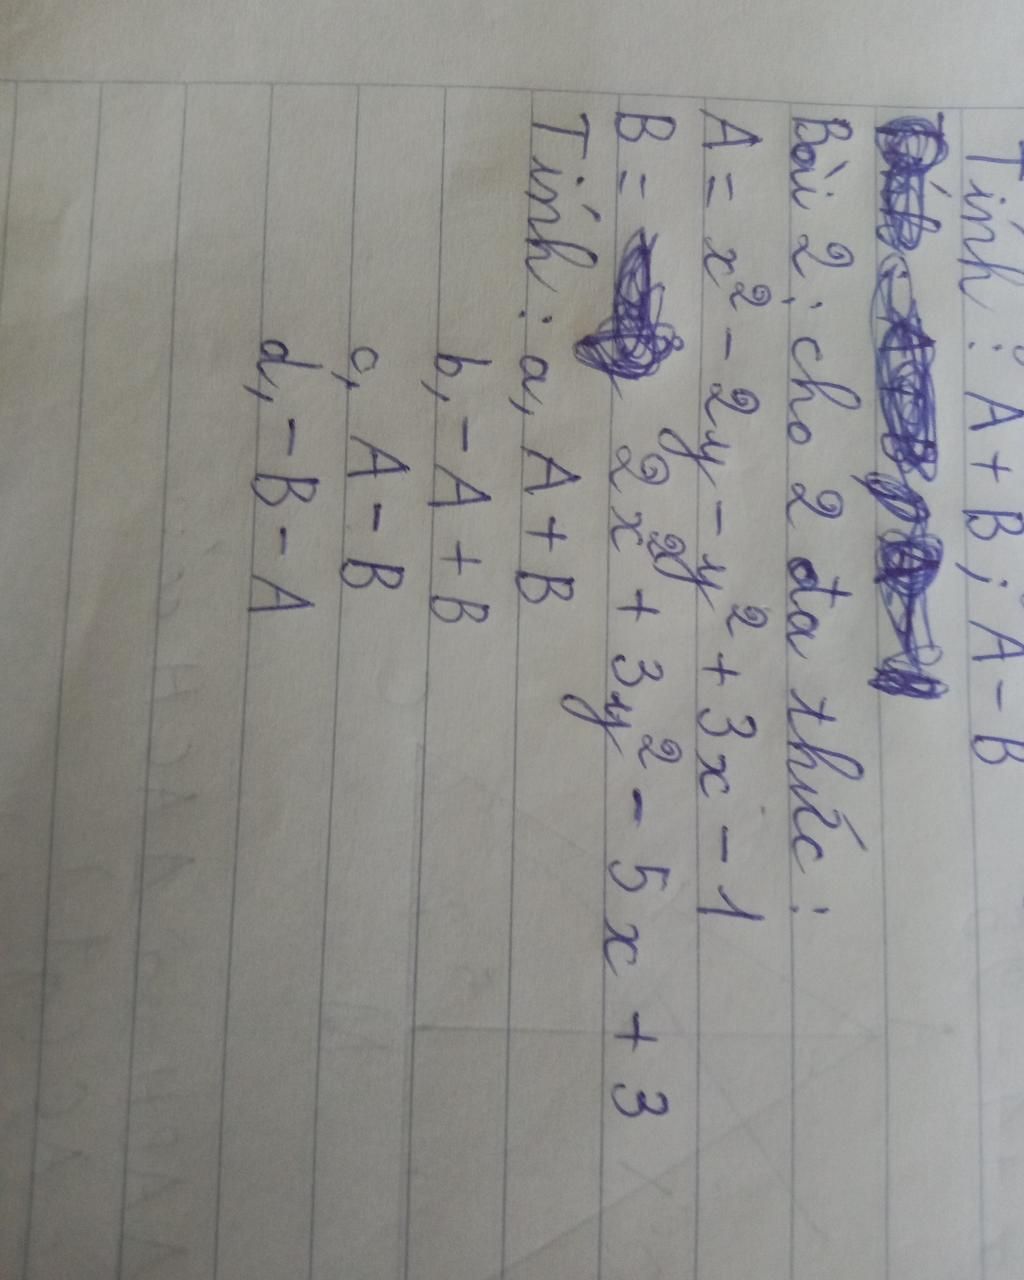 Tính : A + B ; A - B
Bài 2 : cho 2 đa thức :
A = x² - 2y - y² + 3x - 1
B = 2x² + 3y² - 5x + 3
Tính : a, A + B
b, - A + B
c, A - B
d, - B - A